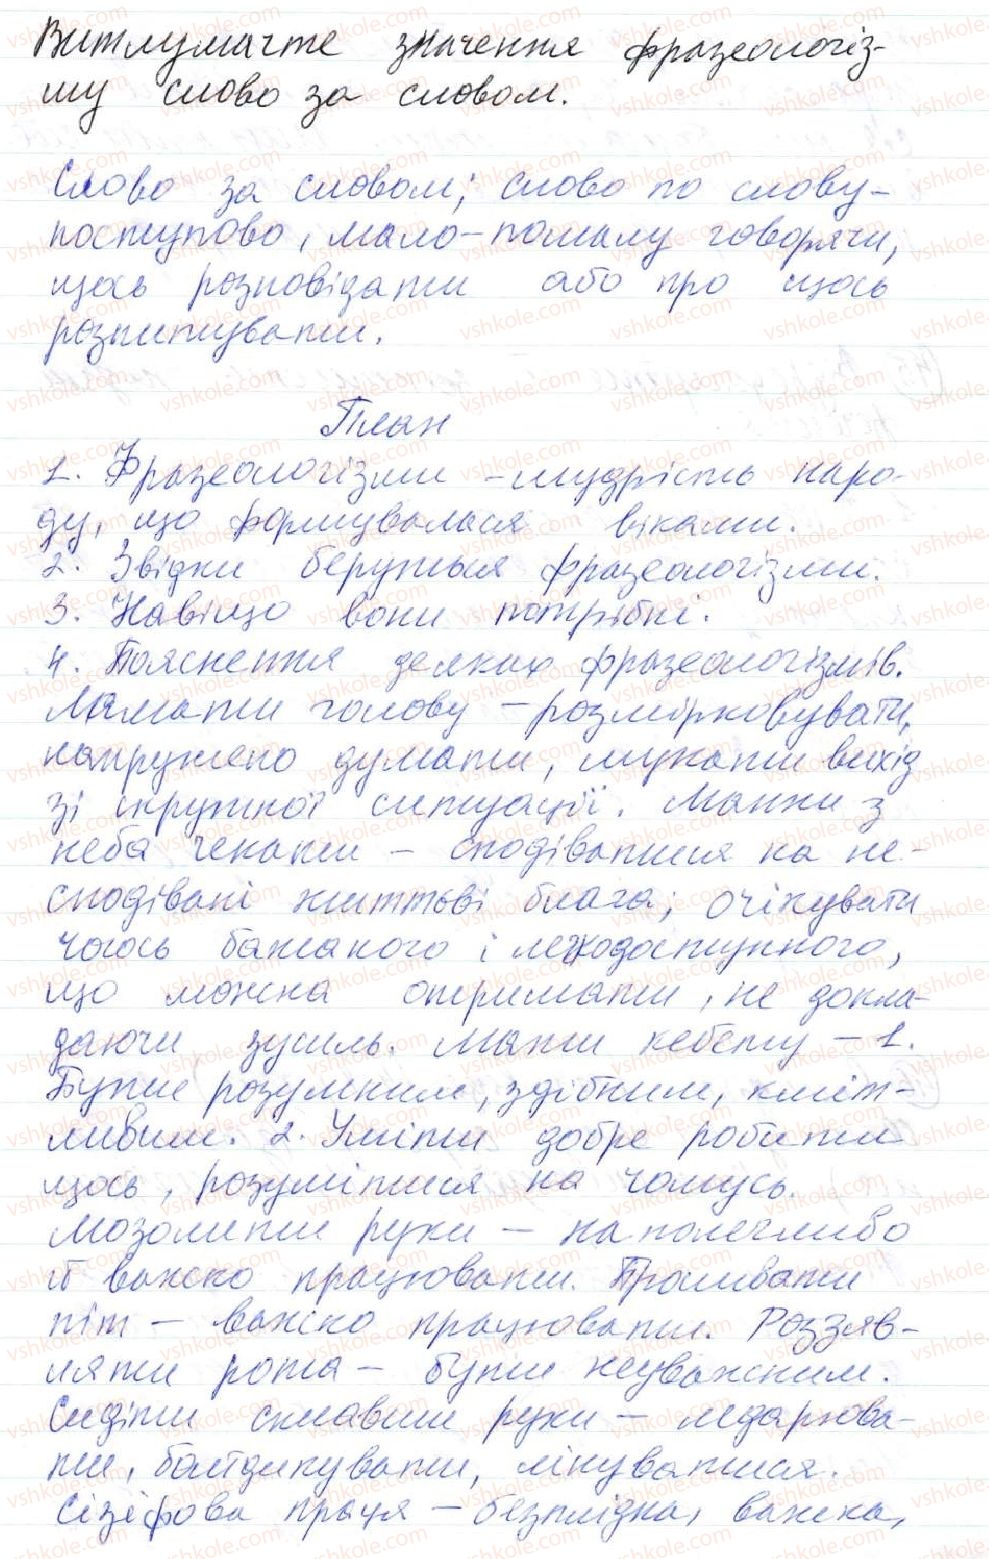 Витлумачте значення фразеологіз-
му слово за словом.
Слово за словом; слово по слову -
поступово, мало-помалу говорячи,
щось розповідати або про щось
розпитувати.
План
1. Фразеологізми - мудрість наро-
ду, що формувалася віками.
2. Звідки беруться фразеологізми.
3. Навіщо вони потрібні.
4. Пояснення деяких фразеологізмів.
Ламати голову - розмірковувати,
напружено думати, шукати вихід
зі скрутної ситуації. Манни з
неба чекати - сподіватися на не-
сподівані життєві блага; очікувати
чогось бажаного і легкодоступного,
що можна отримати, не докла-
даючи зусиль. Мати кебету - 1.
Бути розумним, здібним, кміт-
ливим. 2. Уміти добре робити
щось, розумітися на чомусь.
Мозолити руки - наполегливо
й важко працювати. Проливати
піт - важко працювати. Роззяв-
ляти рота - бути неуважним.
Сидіти склавши руки - ледарюва-
ти, байдикувати, лінуватися.
Сізіфова праця - безплідна, важка,